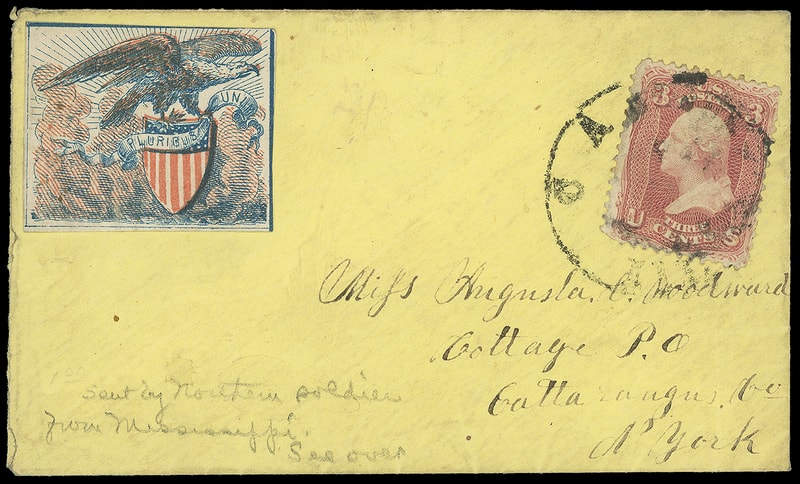 PLURIBUS UNU
3 3
U S
THREE
CENTS
CA
Miss Augusta. C. Woodward
Cottage P.O
Cattaraugus. Co
N. York
sent by Northern soldier
from Mississippi.
See over